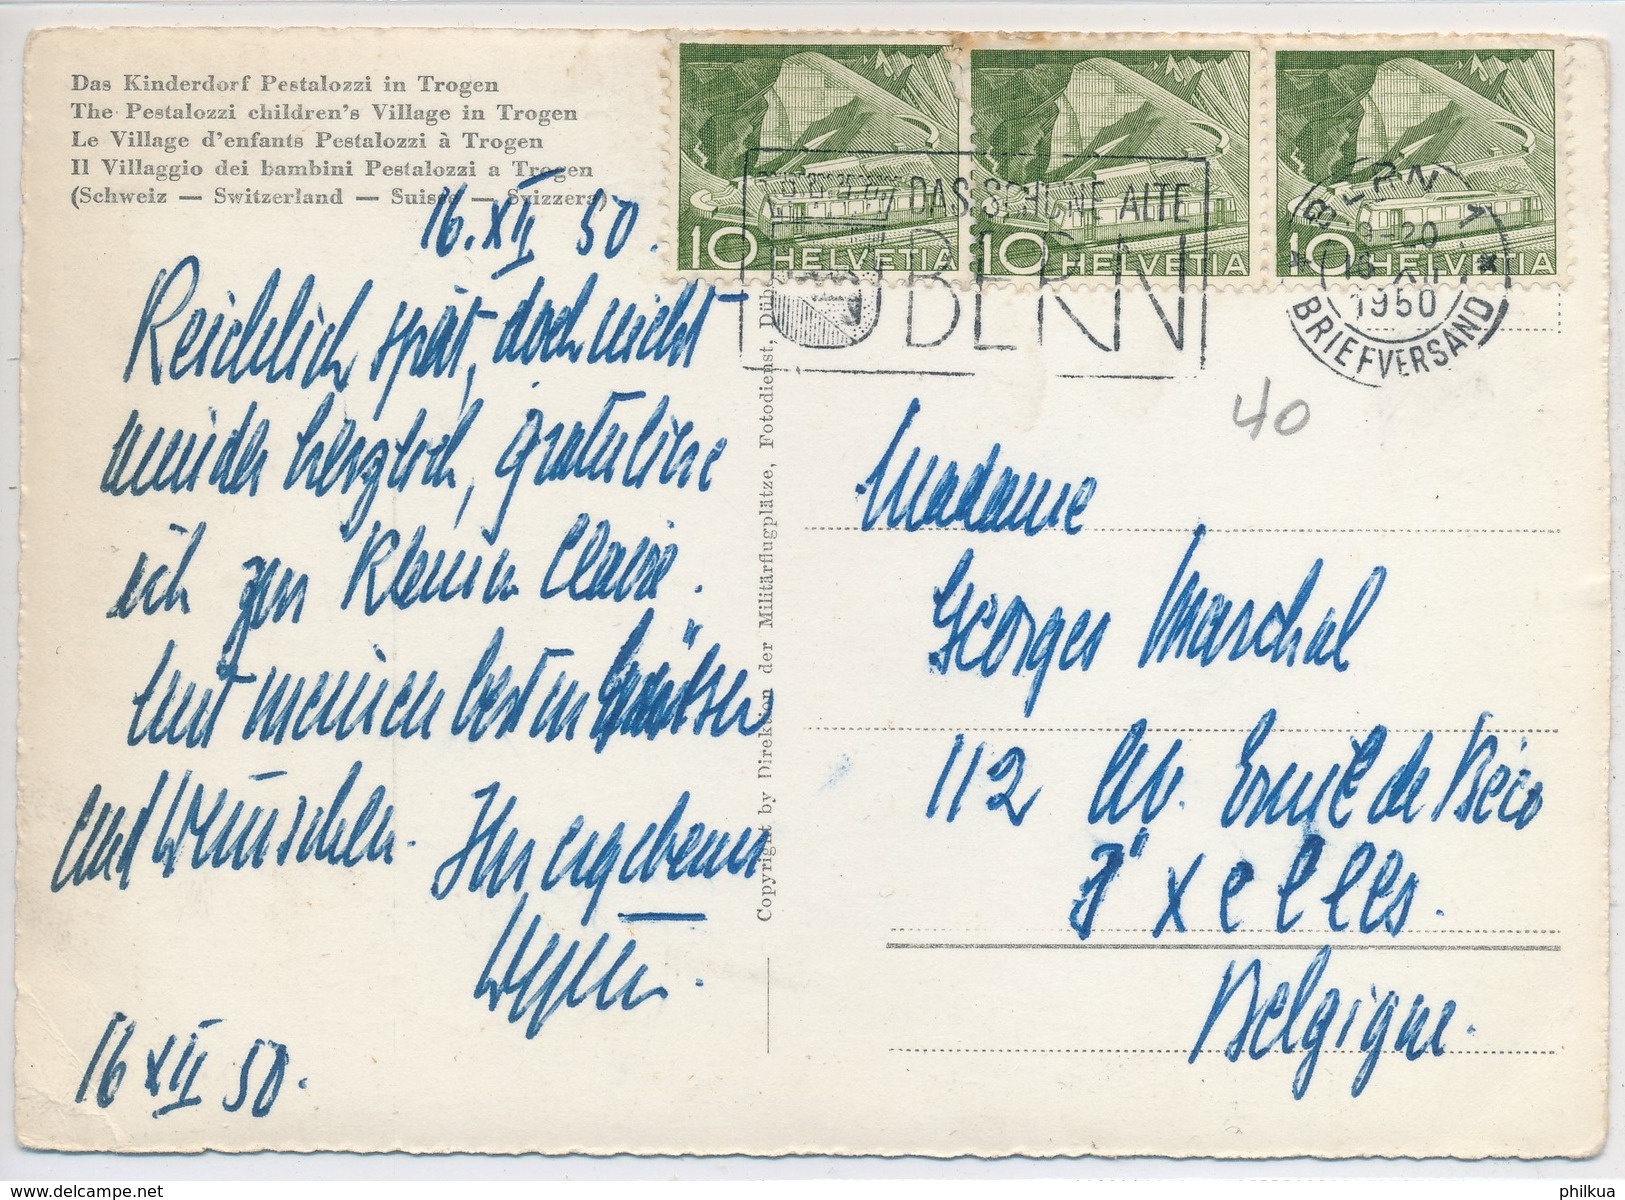 Das Kinderdorf Pestalozzi in Trogen
The Pestalozzi children's Village in Trogen
Le Village d'enfants Pestalozzi à Trogen
Il Villaggio dei bambini Pestalozzi a Trogen
(Schweiz — Switzerland — Suisse — Svizzera)
16. XII 50.
Reichlich spät, doch nicht
minder herzlich, gratuliere
ich zur kleinen Claire.
Mit meinen besten Grüssen
und Wünschen. Ihr ergebener
16 XII 50.
Copyright by Direktion der Militärflugplätze, Fotodienst, Dübendorf
10 HELVETIA
10 HELVETIA
10 HELVETIA
DAS SCHÖNE ALTE
BERN
BERN 1
1950
BRIEFVERSAND
40
Madame
Georges Marchal
112 Av. Emile de Béco
Ixelles.
Belgique.
delcampe.net
philkua